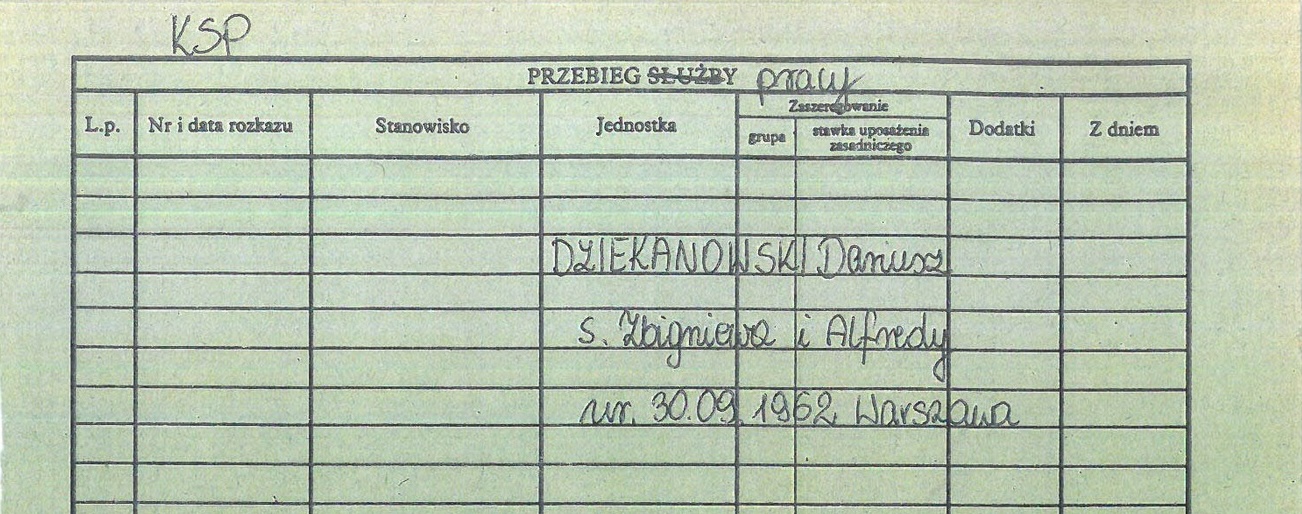 KSP
PRZEBIEG SŁUŻBY pracy
L.p. Nr i data rozkazu Stanowisko Jednostka Zaszeregowanie grupa stawka uposażenia zasadniczego Dodatki Z dniem
DZIEKANOWSKI Dariusz
s. Zbigniewa i Alfredy
ur. 30.09.1962 Warszawa